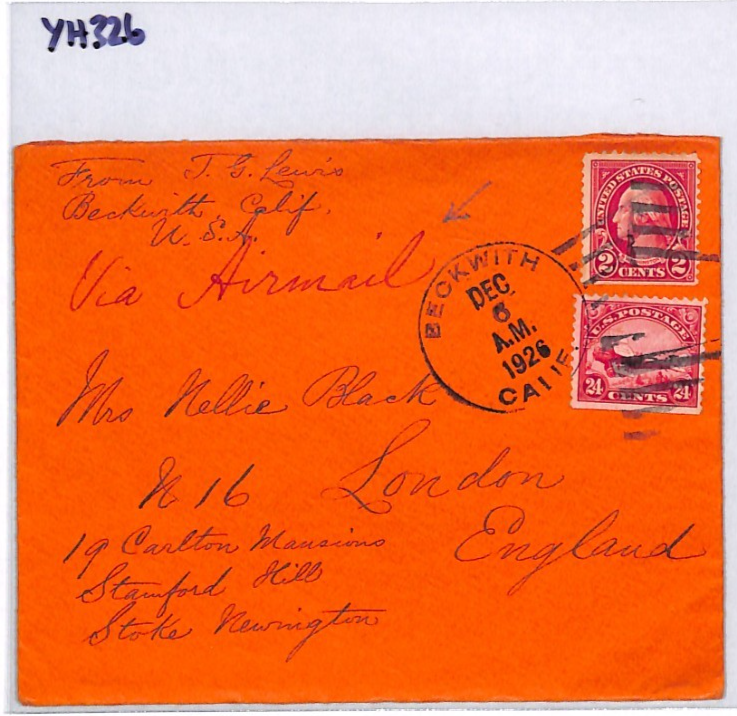 YH326
From T. G. Lewis
Beckwith, Calif.
U.S.A.
Via Airmail
UNITED STATES POSTAGE
2 CENTS 2
BECKWITH
DEC
6
A.M.
1926
CALIF.
U.S. POSTAGE
24 CENTS 24
Mrs Nellie Black
N 16 London
19 Carlton Mansions England
Stamford Hill
Stoke Newington